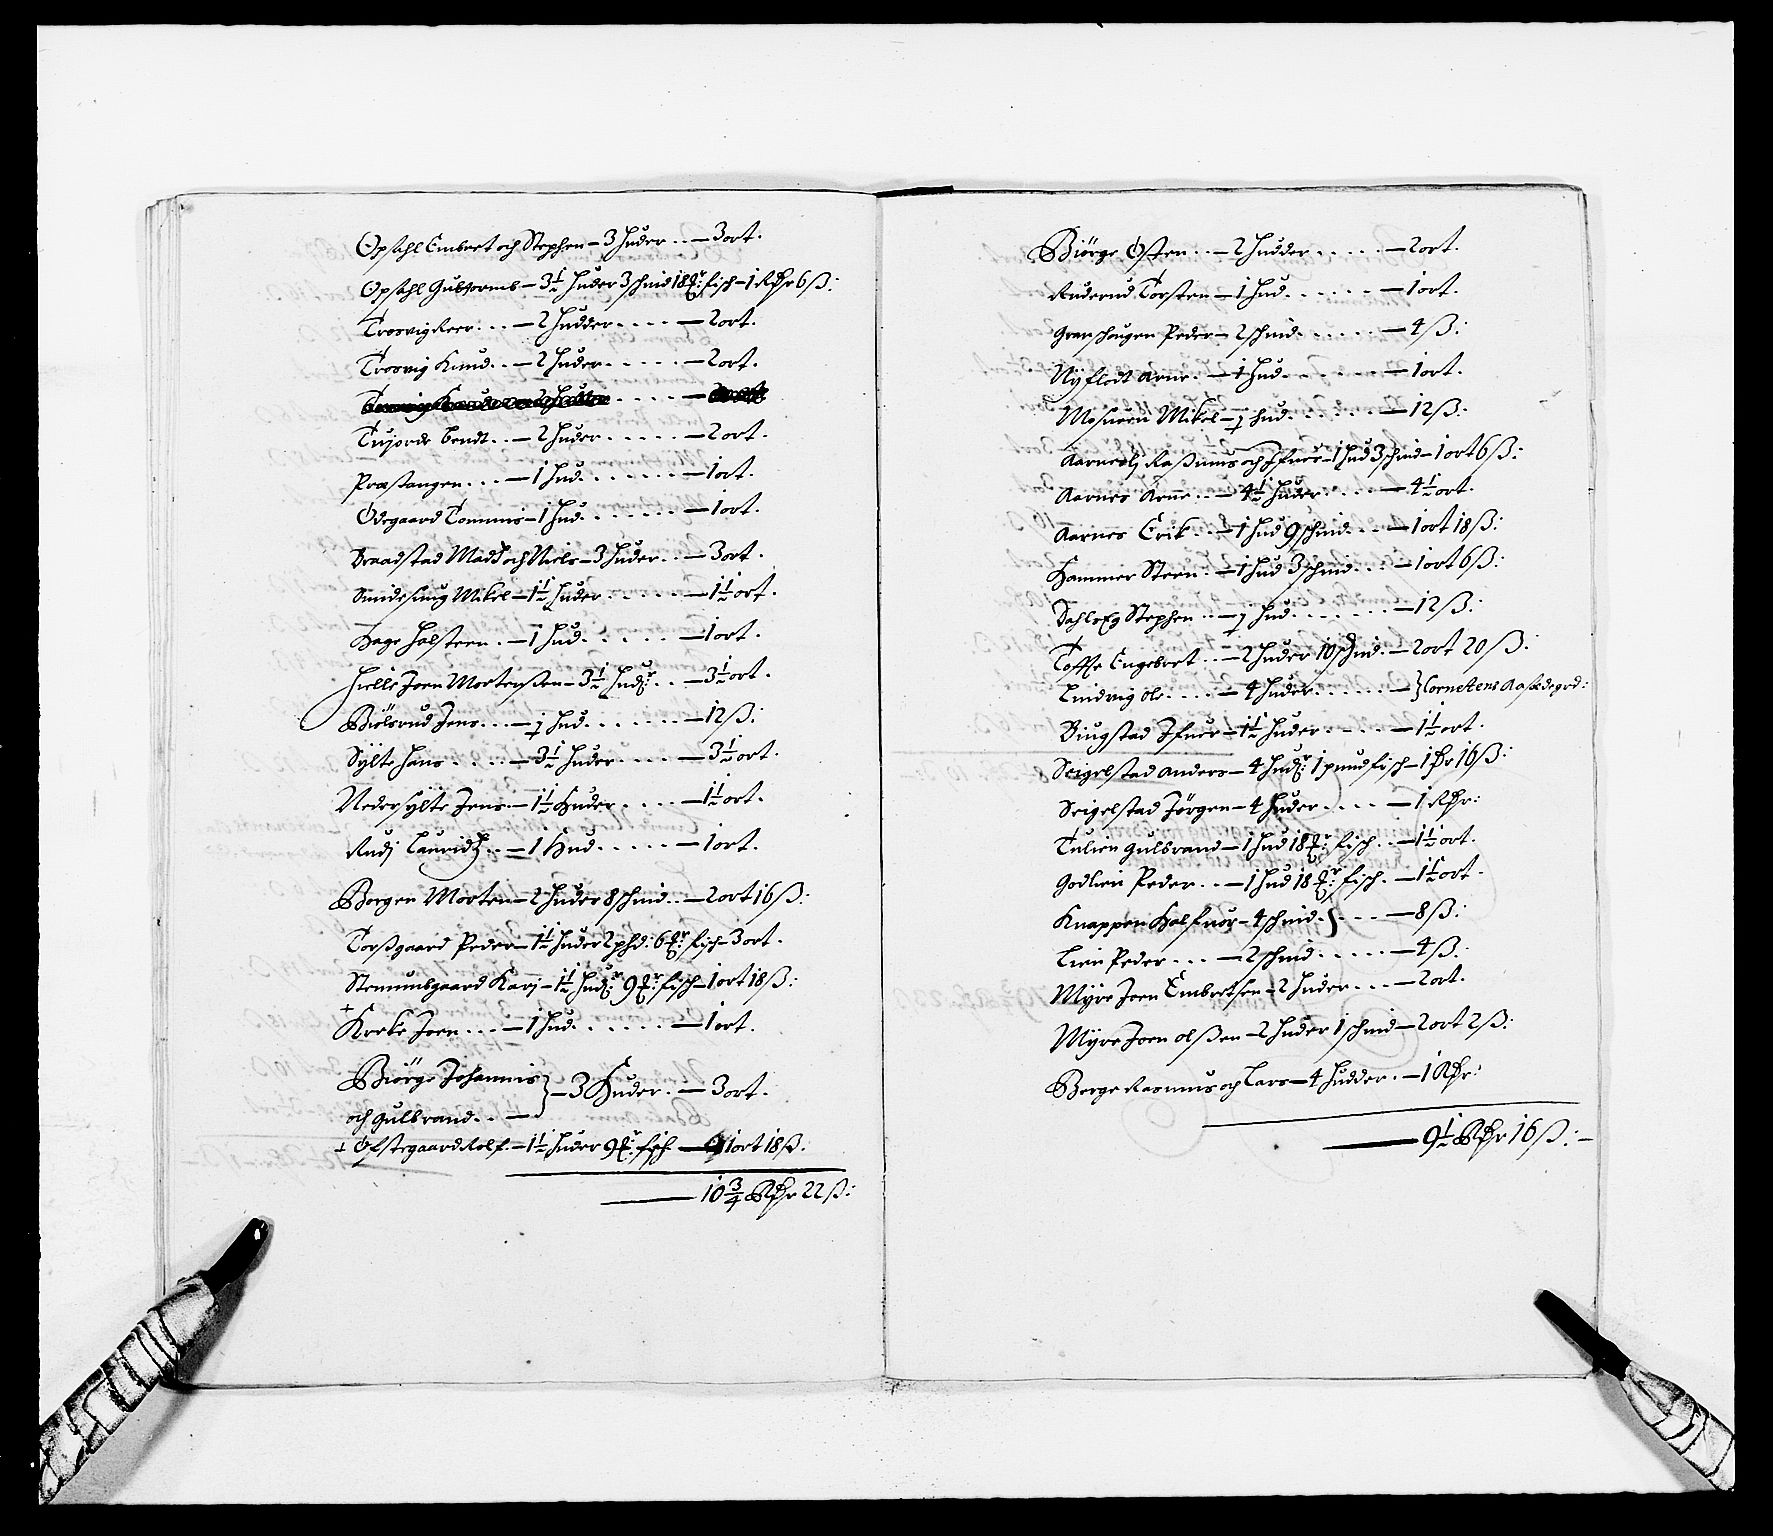 Opsahl Embret och Stephen – 3 huder . . – 3 ort.
Opsahl Gulvorms – 3½ huder 3 schind 18 ℔r: fisch – 1 Rdr 6 ß:
Trosvig Reer . . . – 2 hudder . . . . – 2 ort.
Trosvig Knud . . – 2 huder . . . . . – 2 ort.
Tujorde Bendt . . – 2 huder . . . . . – 2 ort.
Præstangen . . . – 1 hud . . . . . . – 1 ort.
Odegaard Tommis – 1 hud . . . . . . – 1 ort.
Braadstad Madd och Niels – 3 huder . . – 3 ort.
Smidesung Mikel – 1½ huder . . . . . – 1½ ort.
Hage Halsteen . – 1 hud . . . . . . – 1 ort.
Hielle Joen Mortenßen – 3½ hudr: . . – 3½ ort.
Biölsrud Jens . . . – ½ hud . . . . . . – 12 ß:
Sylte Hans . . . . – 3½ huder . . . . – 3½ ort.
Neder Sylte Jens – 1½ Huder . . . . – 1½ ort.
Rudj Lauridtz . . – 1 Hud . . . . . – 1 ort.
Borgen Morten – 2 huder 8 schind . . – 2 ort 16 ß:
Torßgaard Peder – 1½ huder 2 phd: 6 ℔r: fisch – 3 ort.
Stemmbsgaard Karj – 1½ hudr: 9 ℔r: fisch – 1 ort 18 ß:
+
Kreke Joen . . . – 1 hud . . . . . . – 1 ort.
Biörge Johannis
och Gulbrand . . – } – 3 Huder . – 3 ort.
+ Ofstegaard Rolf – 1½ huder 9 ℔r: fisch – 1 ort 18 ß:
10¾ Rdr 22 ß:
Biörge Osten . . – 2 hudder . . . . . – 2 ort.
Ruderud Torsten – 1 hud . . . . . . – 1 ort.
Granshougen Peder – 2 schind . . . . . – 4 ß:
Nyflodt Arne . – 1 hud . . . . . . – 1 ort.
Mosueen Mikel – ½ hud . . . . . . – 12 ß:
Aarnes Raßmus och Ifuer – 1 hud 3 schind – 1 ort 6 ß:
Aarnes Arne . . – 4½ huder . . . . – 4½ ort.
Aarnes Erik . . – 1 hud 9 schind . . . – 1 ort 18 ß:
Hammer Steen . – 1 hud 3 schind . . . – 1 ort 6 ß:
Dahl Stephen . . – ½ hud . . . . . . – 12 ß:
Toffte Engebret . . – 2 huder 10 schind . – 2 ort 20 ß:
Lindvig ole . . . . – 4 huder . . . . . – } Cornetens aasædegrd:
Biugstad Ifuer – 1½ huder . . . . – 1½ ort.
Seigelstad Anders – 4 hudr: 1 pund fisch – 1 Rdr 16 ß:
Seigelstad Jørgen – 4 huder . . . . – 1 Rdr:
Tulien Gulbrand – 1 hud 18 ℔r: fisch . . – 1½ ort.
Godlien Peder . . – 1 hud 18 ℔r: fisch . – 1½ ort.
Knappen Halfuor – 4 schind } . . . – 8 ß:
Lien Peder . . . – 2 schind . . . . . – 4 ß:
Myre Joen Embretsen – 2 huder . . . – 2 ort.
Myre Joen olßen – 2 huder 1 schind – 2 ort 2 ß:
Berge Rasmus och Lars – 4 hudder . – 1 Rdr:
9½ Rdr 16 ß: –